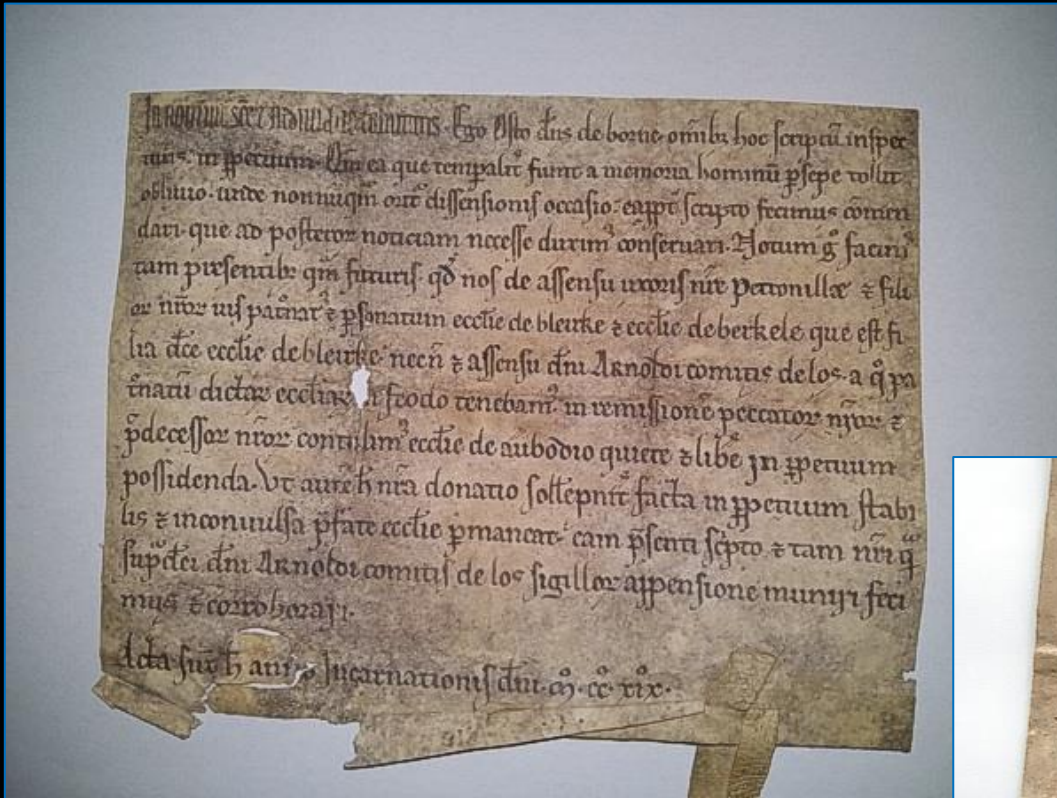 In nomine sce et individue trinitatis. Ego Osto dns de borne omnibz hoc scriptu inspec
turis. in ppetuum. Qm ea que tempalit fiunt a memoria hominu psepe tollit
oblivio. unde nonnuqm orit dissensionis occasio. eappt scripto fecimus comen
dari que ad posteror noticiam necesse duxim conservari. Notum g facim
tam presentibz qm futuris. qd nos de assensu uxoris nre petronille & filі
or nror ius patnat & psonatum ecclie de bleirke & ecclie de berkele que est fi
lia dce ecclie de bleirke. necn & assensu dni Arnoldi comitis de los. a q pa
tnatu dictar eccliar in feodo tenebam. in remissione peccator nror &
pdecessor nror contulim ecclie de aubodio quiete & libe in ppetuum
possidenda. Ut aute h nra donatio sollepnit facta in ppetuum stabi
lis & inconvulsa pfate ecclie pmaneat. eam psenti scpto & tam nri q
supdci dni Arnoldi comitis de los sigillor appensione muniri feci
mus & corroborari.
Acta sut h anno Incarnationis dni. m. cc. xix.